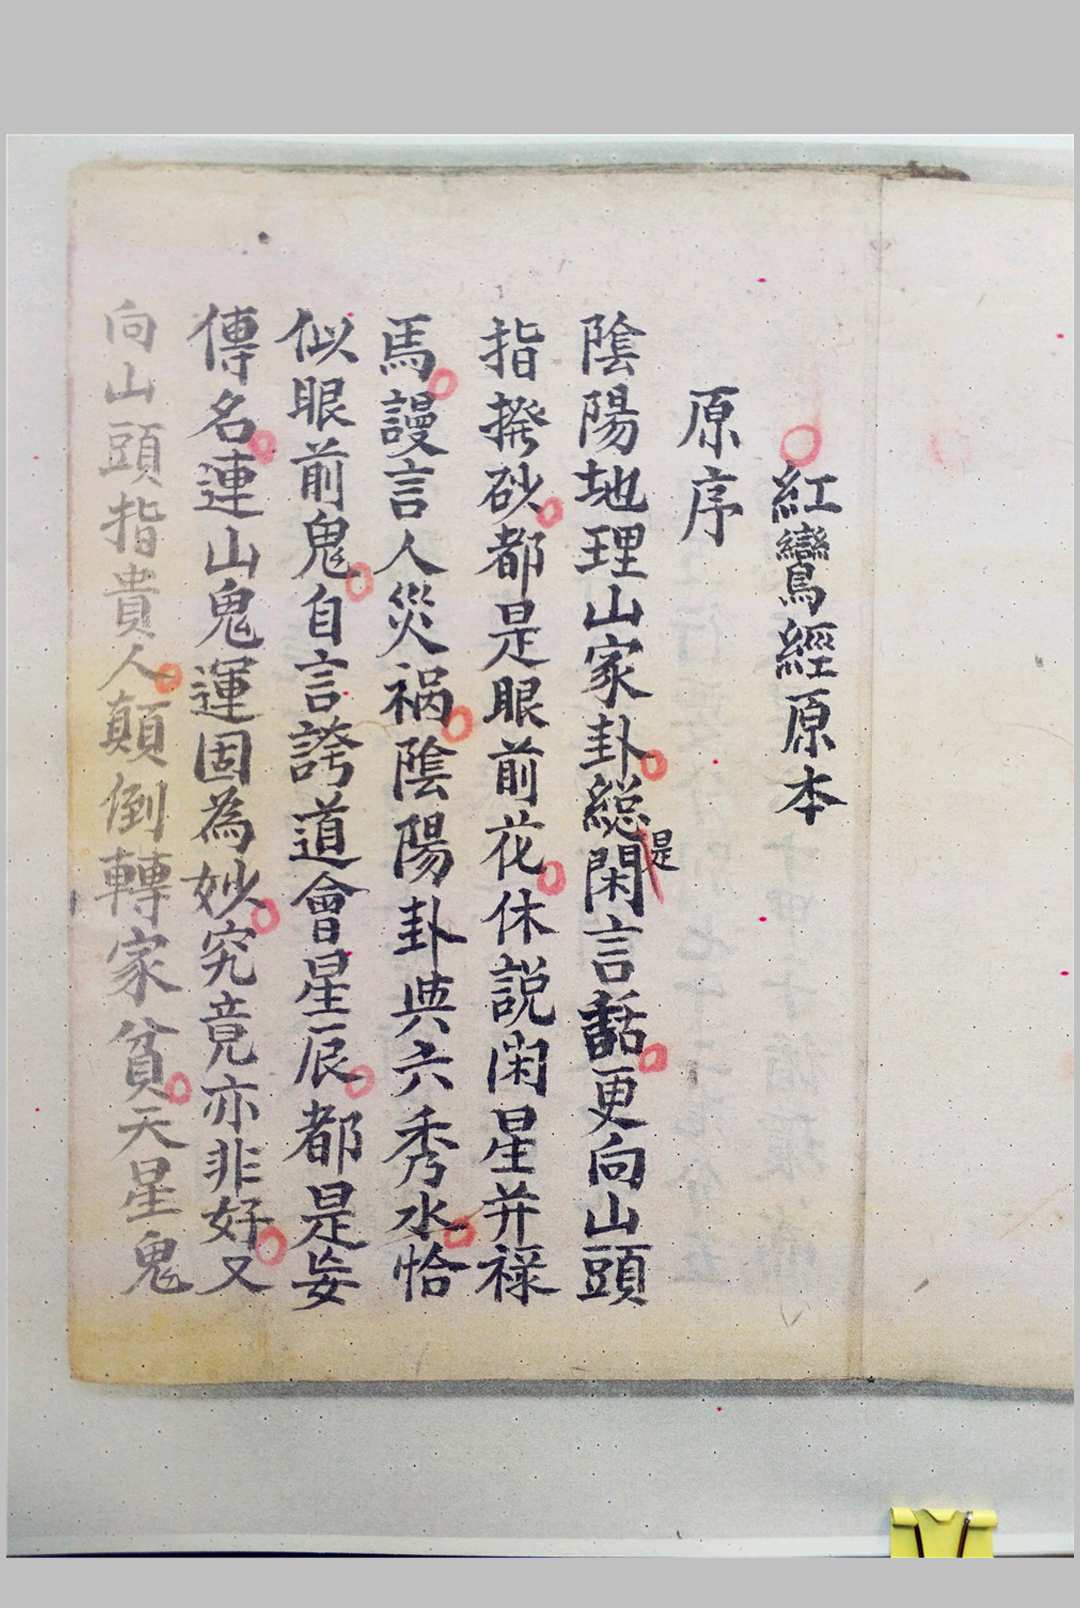 紅鸞經原本
原序
陰陽地理山家卦總是閑言話更向山頭
指撥砂都是眼前花休說閑星并祿
馬謾言人災禍陰陽卦與六秀水恰
似眼前鬼自言誇道會星辰都是妄
傳名連山鬼運固為妙究竟亦非好又
向山頭指貴人顛倒轉家貧天星鬼